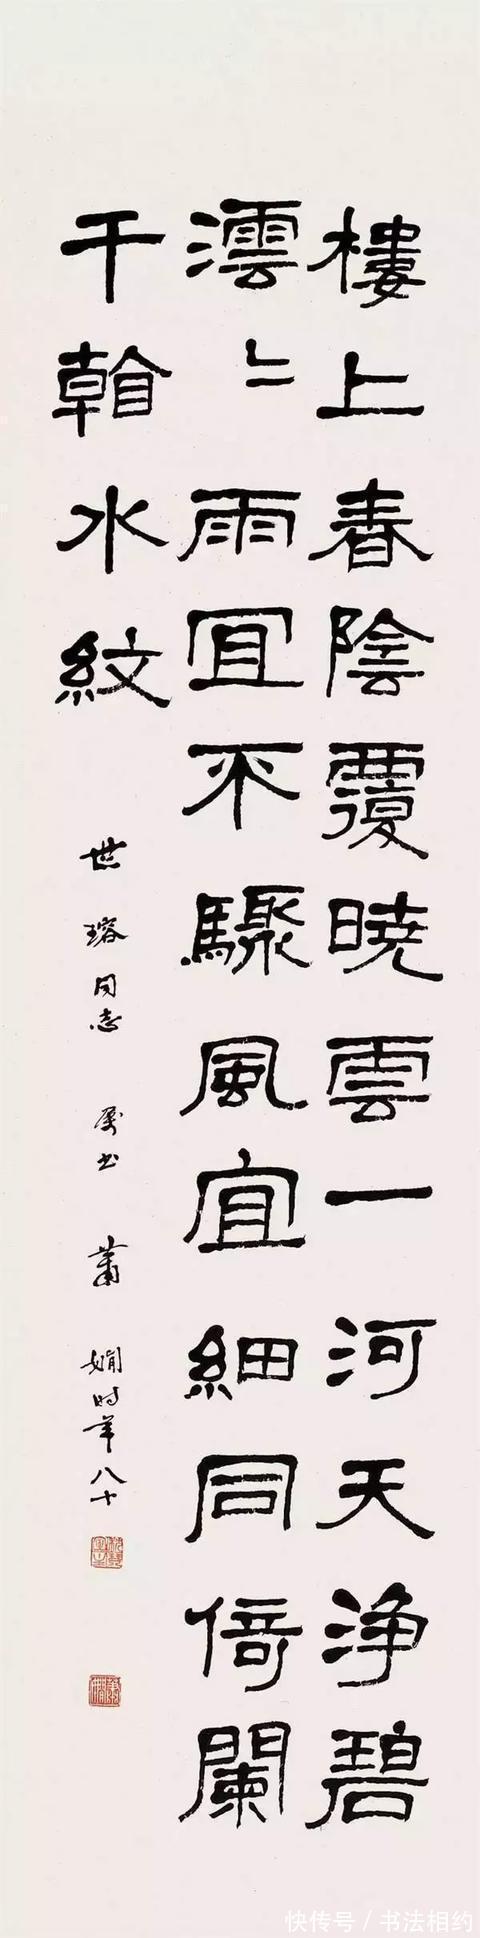 樓上春陰覆曉雲一河天淨碧
澐〻雨冝不驟風宜細同倚闌
干看水紋
世瑢同志 屬书 蕭嫻時年八十
快传号 / 书法相约